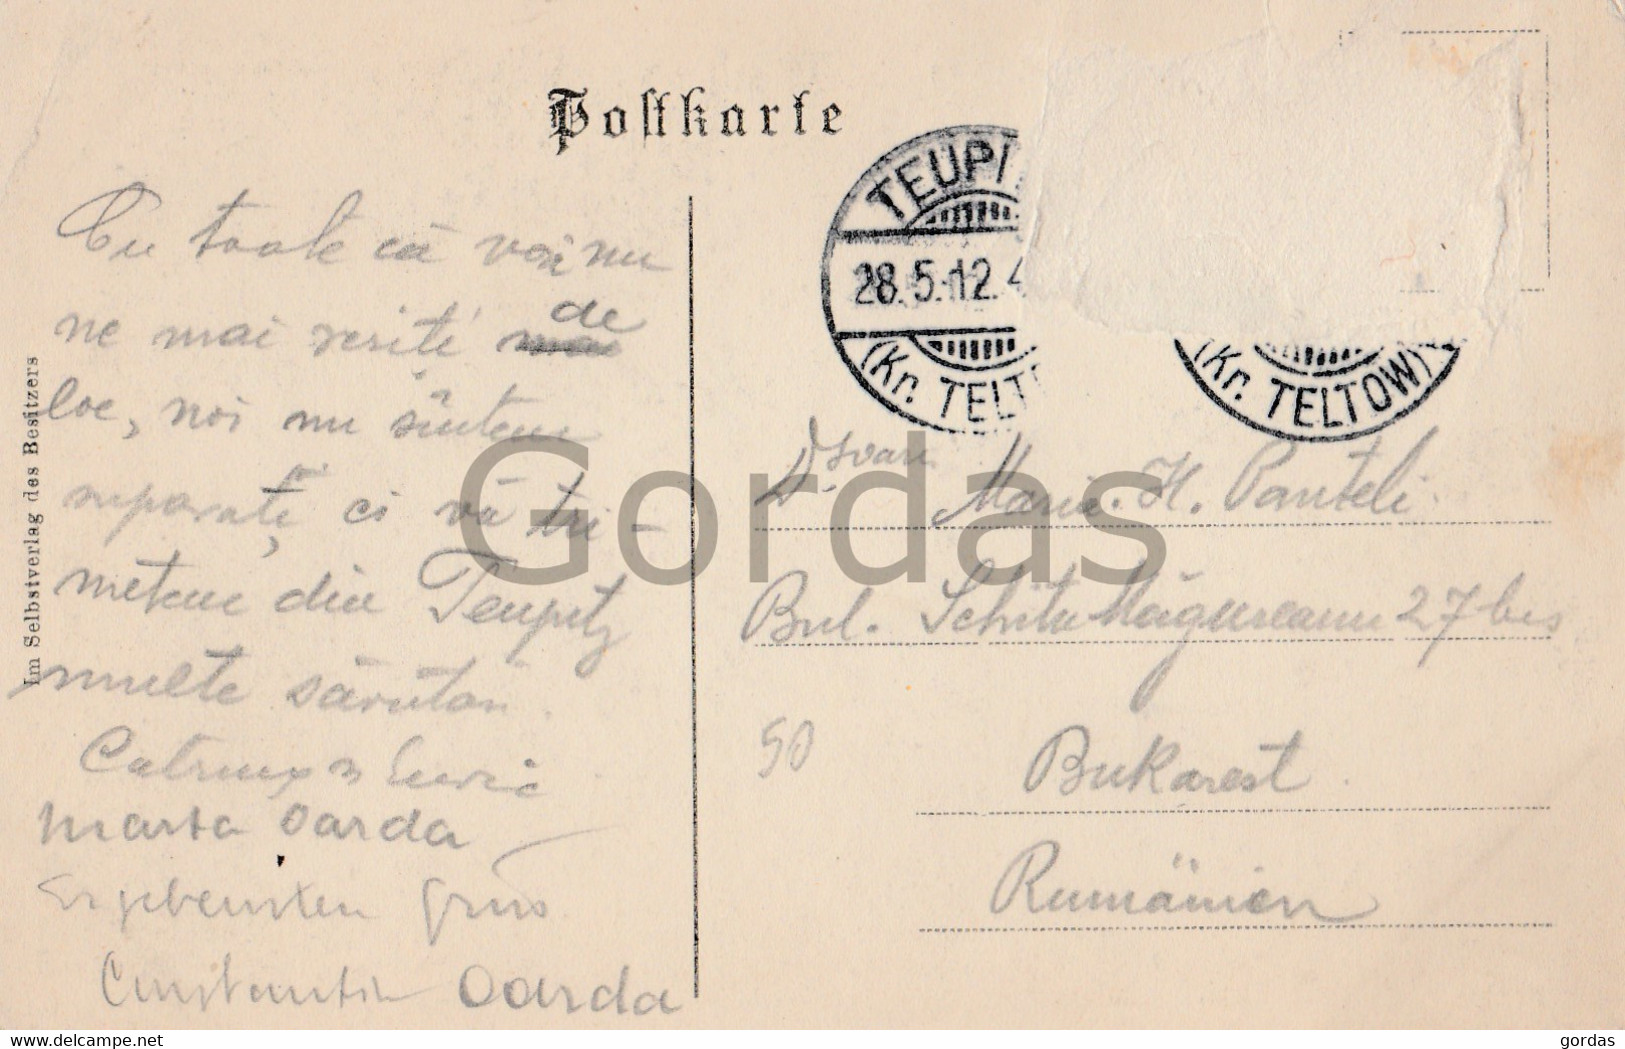 Postkarte
TEUPI
28.5.12.4
(Kr. TELT
(Kr. TELTOW)
Im Selbstverlag des Besitzers
Cu toate că voi nu
ne mai
de
loc, noi nu sîntem
ci vă tri-
metem din Teupitz
multe sărutări.
Marta Oarda
Ergebensten Gruss
Constantin Oarda
Marie. H. Panteli.
Bul. Schitu Măgureanu 27 bis
50
Bukarest.
Rumänien
Gordas
delcampe.net
gordas